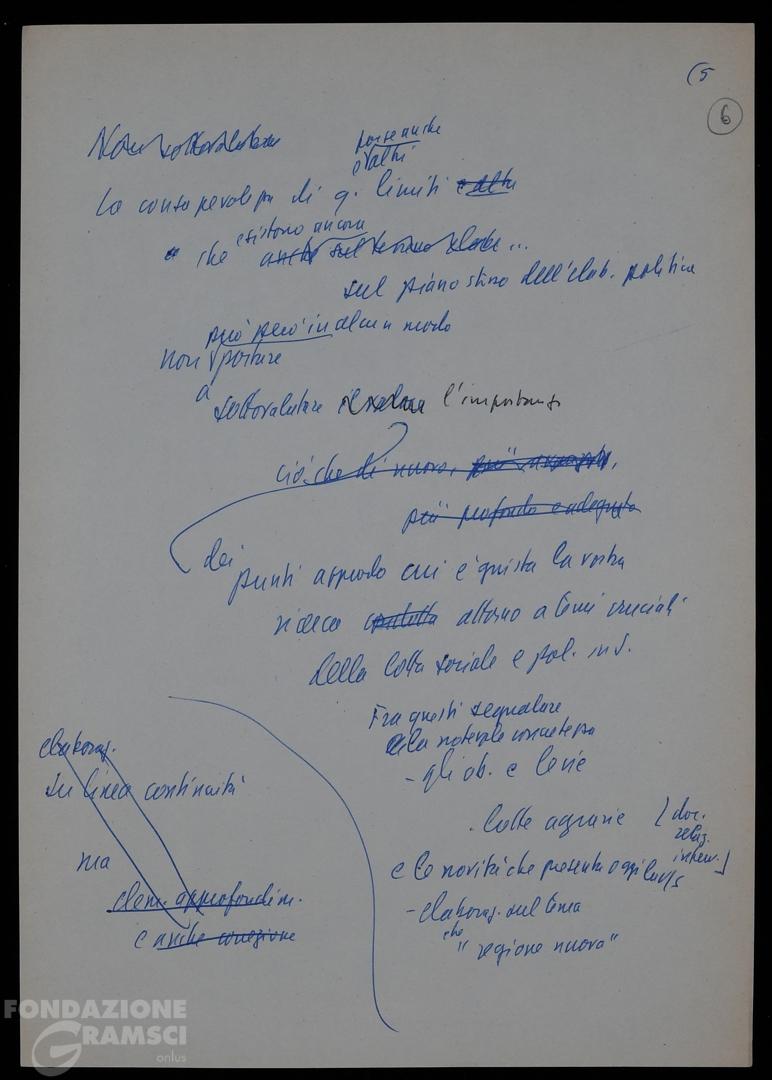 (5
6
Non sottovalutare
forse anche
e altri
La consapevolezza di q. limiti e altri
esistono ancora
che anche sul terreno
sul piano stesso dell'elab. politica
può però in alcun modo
non portare
a
sottovalutare il valore l'importanza
ciò che di nuovo, più avanzato,
più profondo e adeguato
dei
punti approdo cui è giunta la vostra
ricerca attorno a temi cruciali
della lotta sociale e pol. in S.
Fra questi segnalare
la notevole concretezza
- gli ob. e le vie
lotte agrarie [doc.
relaz.
interv.]
e le novità che presenta oggi
- elaboraz. sul tema
che
"regione nuova"
elaboraz.
in linea continuità
ma
elem. approfondim.
e anche correzione
FONDAZIONE
GRAMSCI
onlus